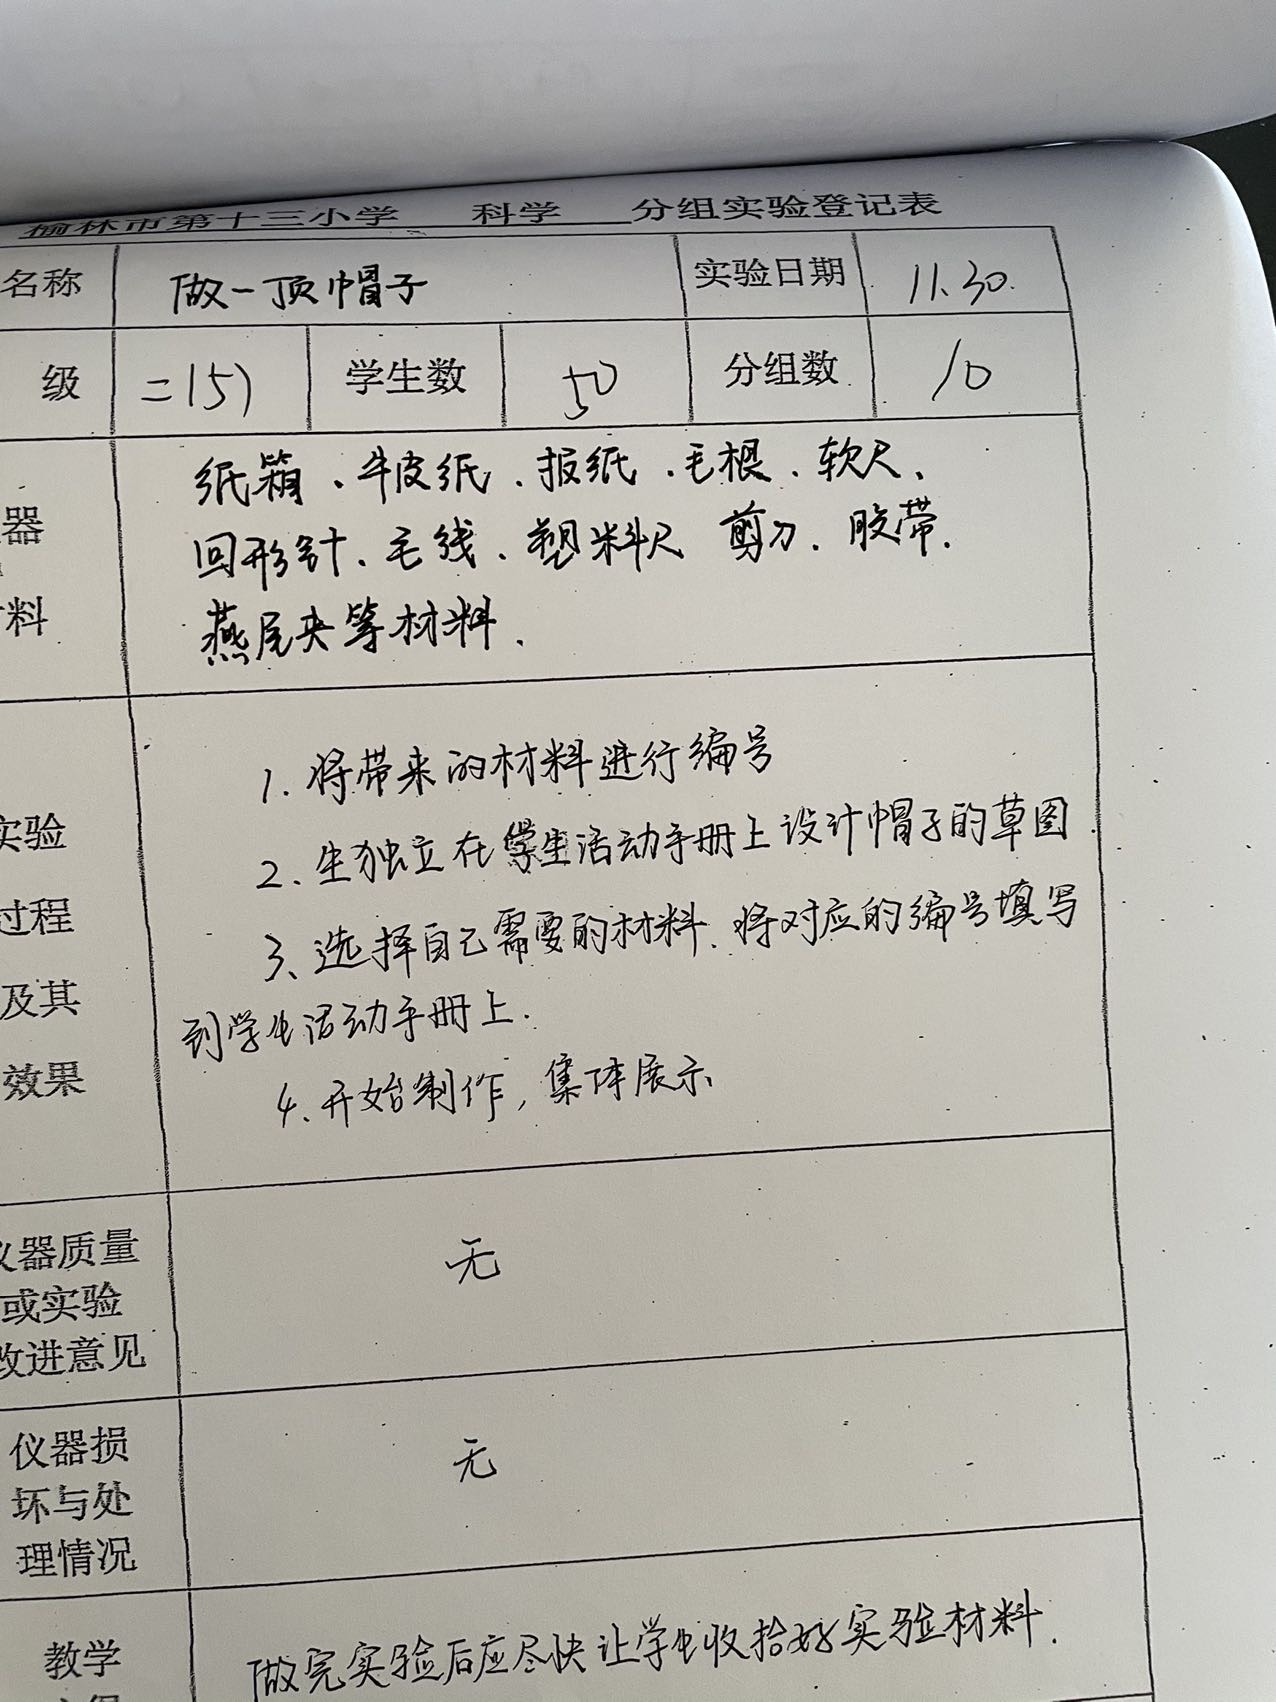 榆林市第十三小学 科学 分组实验登记表
名称 做一顶帽子 实验日期 11.30.
级 二(5) 学生数 50 分组数 10
纸箱、牛皮纸、报纸、毛根、软尺、
器 回形针、毛线、塑料尺 剪刀、胶带、
料 燕尾夹等材料.
1. 将带来的材料进行编号
实验 2、生独立在学生活动手册上设计帽子的草图.
过程 3、选择自己需要的材料、将对应的编号填写
及其 到学生活动手册上.
效果 4. 开始制作, 集体展示
仪器质量
或实验 无
改进意见
仪器损
坏与处 无
理情况
教学 做完实验后应尽快让学生收拾好实验材料.